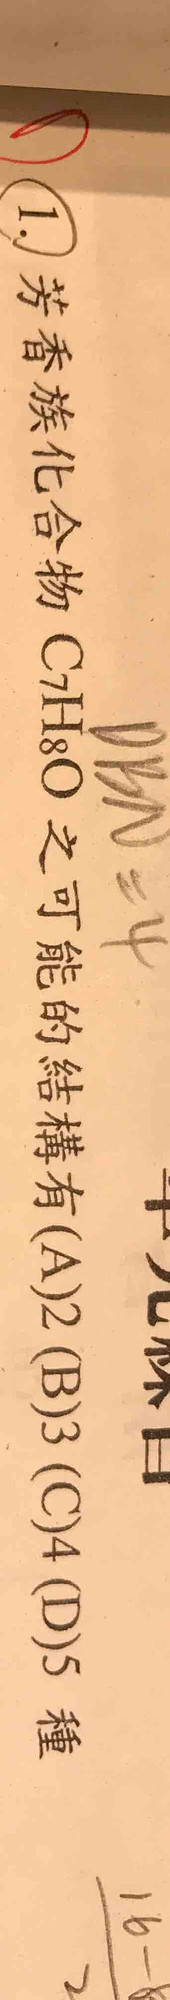 DBN = 4
1. 芳香族化合物 C7H8O 之可能的結構有(A)2 (B)3 (C)4 (D)5 種